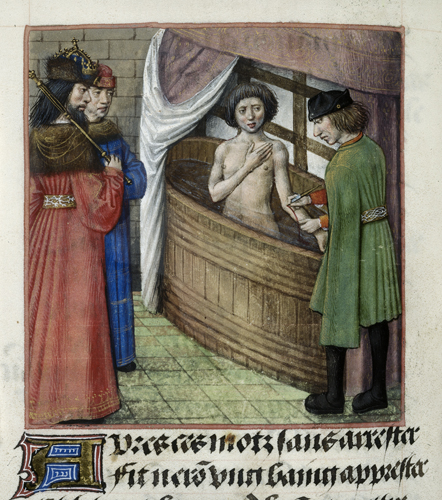 Apres ces motz sans arrester
Fit nerõ vng baing apprester